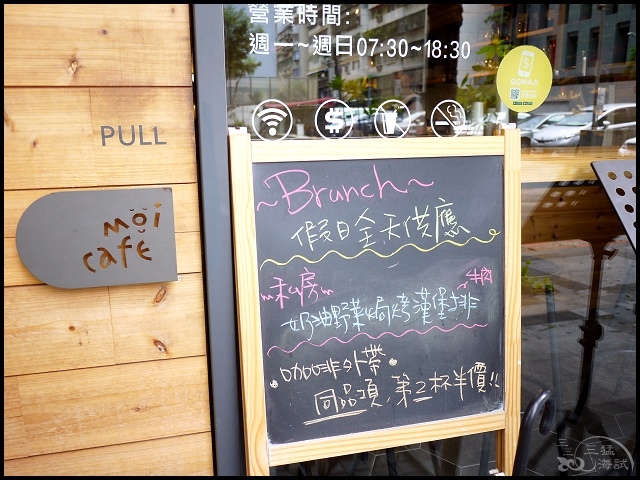 營業時間:
週一~週日07:30~18:30
GOMAJI
PULL
moi
cafe
~Brunch~
假日全天供應
私房
牛肉
奶油野菜焗烤漢堡排
咖啡外帶
同品項,第2杯半價!!
三猛
海試